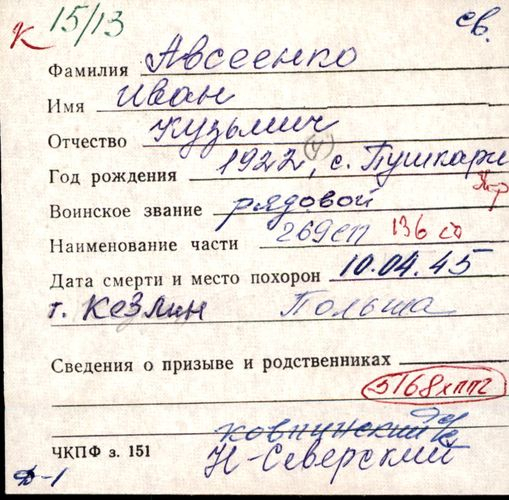 к 15/13 св.
Фамилия Авсеенко
Имя Иван
Отчество Кузьмич
Год рождения 1922, (у) с. Пушкари
Воинское звание рядовой
Наименование части 269сп 136 сд
Дата смерти и место похорон 10.04.45
г. Кезлин Польша
Сведения о призыве и родственниках
5168хппг
ковпинский
ЧКПФ з. 151 Н-Северский
Ф-1